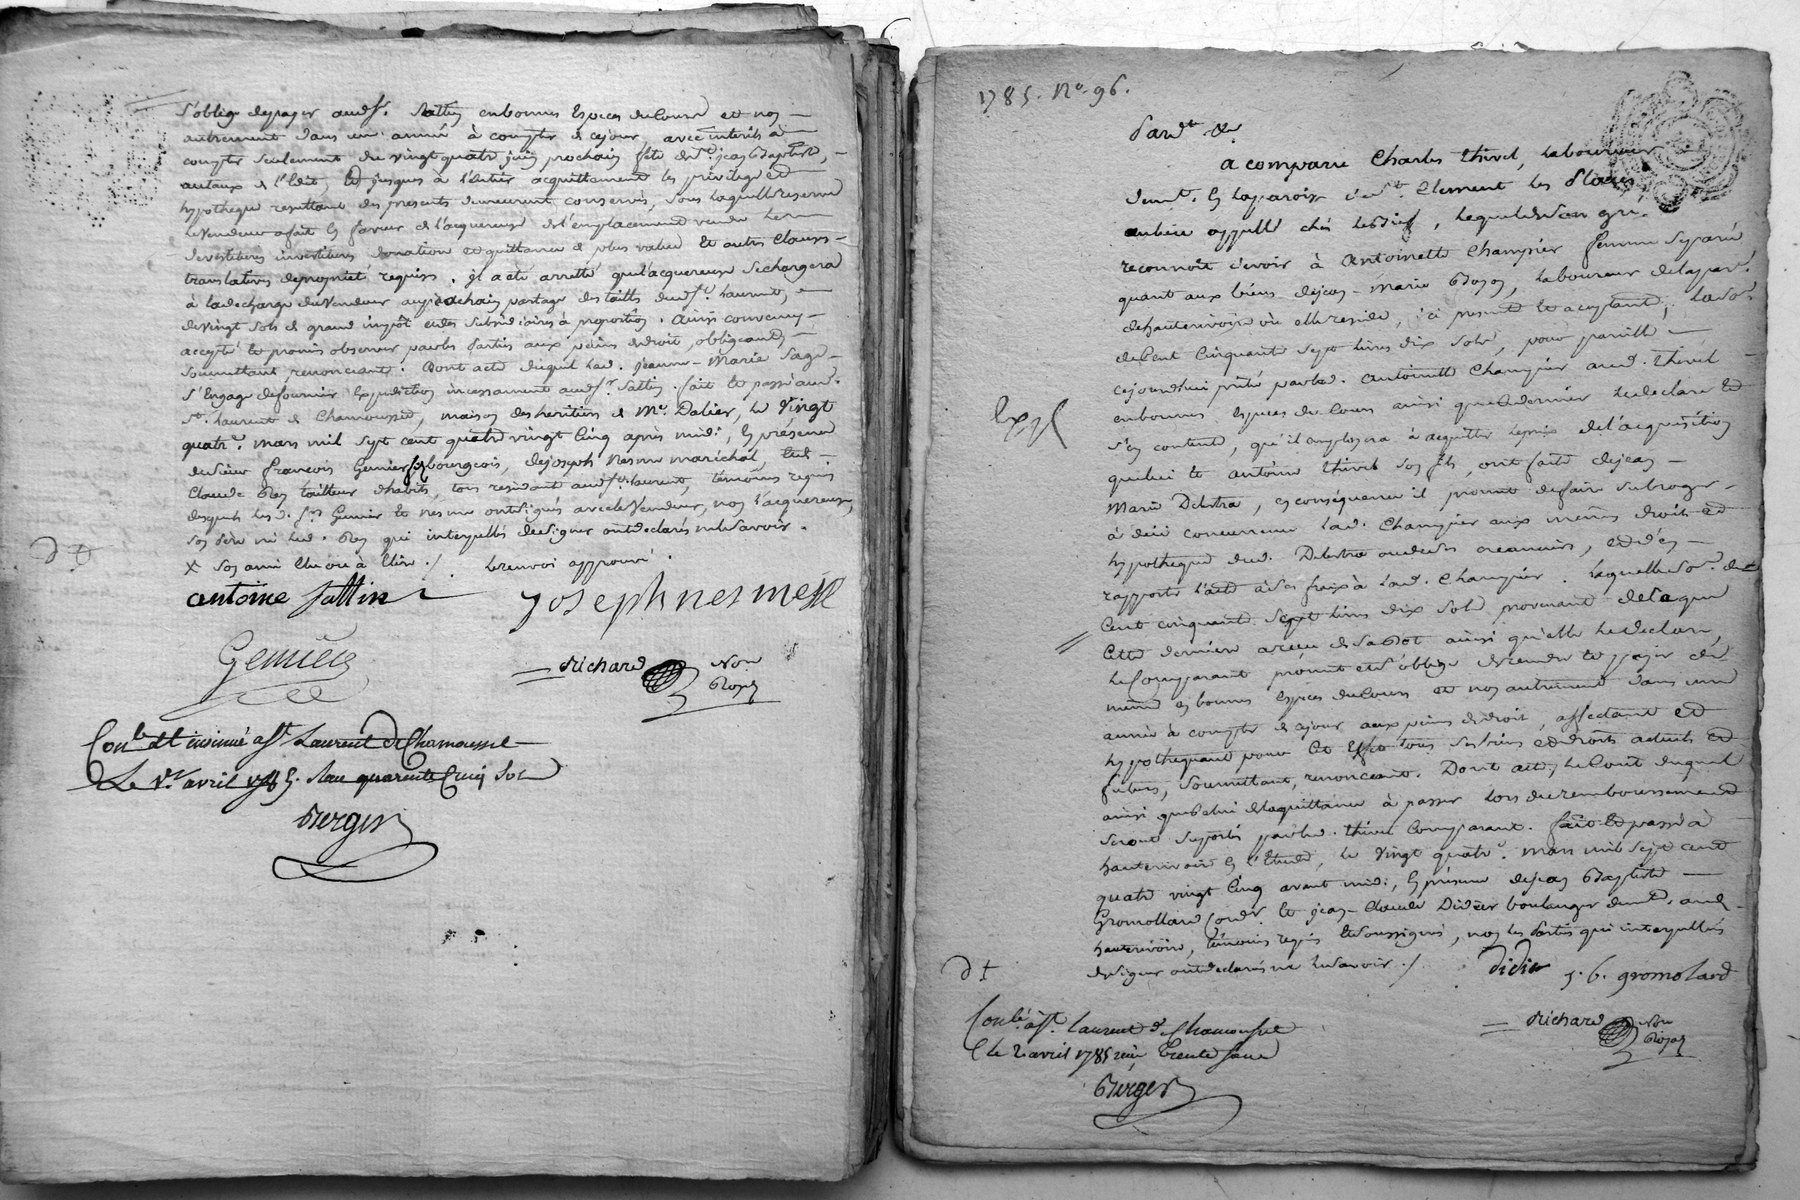 s'oblige de payer aud Sr. Sattin en bonnes Espèces de Cours et non
autrement dans une année à compter de ce jour, avec intérêts à
compter seulement du vingt quatre juin prochain fête de St. jean Baptiste,
au taux de l'Edit, et jusques à l'entier acquittement les privilège et
hypotheque resultant des presents demeurent conservés, sous laquelle reserve
le vendeur a fait en faveur de l'acquereuse de l'emplacement vendu les
devestitures investitures donation et quittance de plus value et autres clauses
translatives de propriété requises. il a été arretté que l'acquereuse se chargera
à la decharge du vendeur au prochain partage des tailles dud St. Laurent,
de vingt sols de grand impôt et des subsidiaires à proportion. ainsi convenu,
accepté et promis observer par les Parties aux peines de droit, obligeant,
soumettant, renonceant. Dont acte duquel lad. jeanne-Marie
s'Engage de fournir Expédition incessament aud Sr. Sattin. fait et passé aud.
St. Laurent de Chamousset, maison des heritiers de Me. Dalier, le vingt
quatre. mars mil sept cent quatre vingt cinq après midi, En présence
de sieur françois Gemier bourgeois, de joseph Nesme maréchal et de
Claude Rey tailleur d'habits, tous residant aud St. Laurent, témoins requis
desquels lesd. Srs Gemier et Nesme ont signés avec le vendeur, non l'acquereuse,
ni led. Rey qui interpellés de signer ont declarés ne le savoir.
x son ami Elu ou à Elire ./. le renvoi approuvé.
antoine Sattin joseph nesme
Gemier
Richard Not. Royal
Conlé. et insinué à St. Laurent de Chamousset
Le 1er. avril 1785. Reçu quarente Cinq Sols
Berger
1785. No. 96.
Pardt. &a
a comparu Charles thivel, laboureur
demt. En la paroisse de St. Clement les Places
au lieu appellé chés , lequel de son gré
reconnoit devoir à Antoinette Champier femme separée
quant aux biens de jean-Marie Bozon, laboureur de la par.
de hauterivoire où elle reside, ici presente et aceptant, la some
de Cent Cinquante sept livres dix sols, pour pareille
cejourd'hui prêté par lad. Antoinette Champier aud. thivel
en bonnes espèces de Cours ainsi que ce dernier le declare et
s'en contente, qu'il employera à acquitter le prix de l'acquisition
que lui et antoine thivel son fils, ont fait de jean
Marie Delestra, en conséquence il promet de faire subroger
à due concurrence lad. Champier aux memes droits et
hypotheque dud. Delestra ou de ses creanciers, et d'en
rapporter l'acte à ses frais à lad. Champier. laquelle so. de
Cent cinquante Sept livres dix sols provenant de ce que
Cette derniere a reçu de sa Dot ainsi qu'elle le declare,
le Comparant promet et s'oblige de rendre et payer de
même en bonnes Espèces de Cours et non autrement dans une
année à compter de ce jour aux peines de droit, affectant et
hypothequant pour ce Effet tous ses biens et droits actuels et
futurs, soumettant, renonceant. Dont acte, le Cout duquel
ainsi que celui de la quittance à passer lors du remboursement
seront suportés par led. thivel Comparant. fait et passé à
hauterivoire En l'Etude, le vingt quatre. mars mil sept cent
quatre vingt Cinq avant midi, En présence de jean Baptiste
Gromollard Cordr. et jean-Claude Didier boulanger demt. aud.
hauterivoire, témoins requis et soussignés, non les Parties qui interpellées
de signer ont declarés ne le savoir ./.
Didier j. b. gromolard
Richard Not. Royal
Conlé. à St. Laurent de Chamousset
le 2 avril 1785 reçu trente sous
Berger